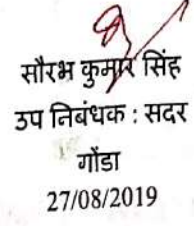 सौरभ कुमार सिंह
उप निबंधक : सदर
गोंडा
27/08/2019